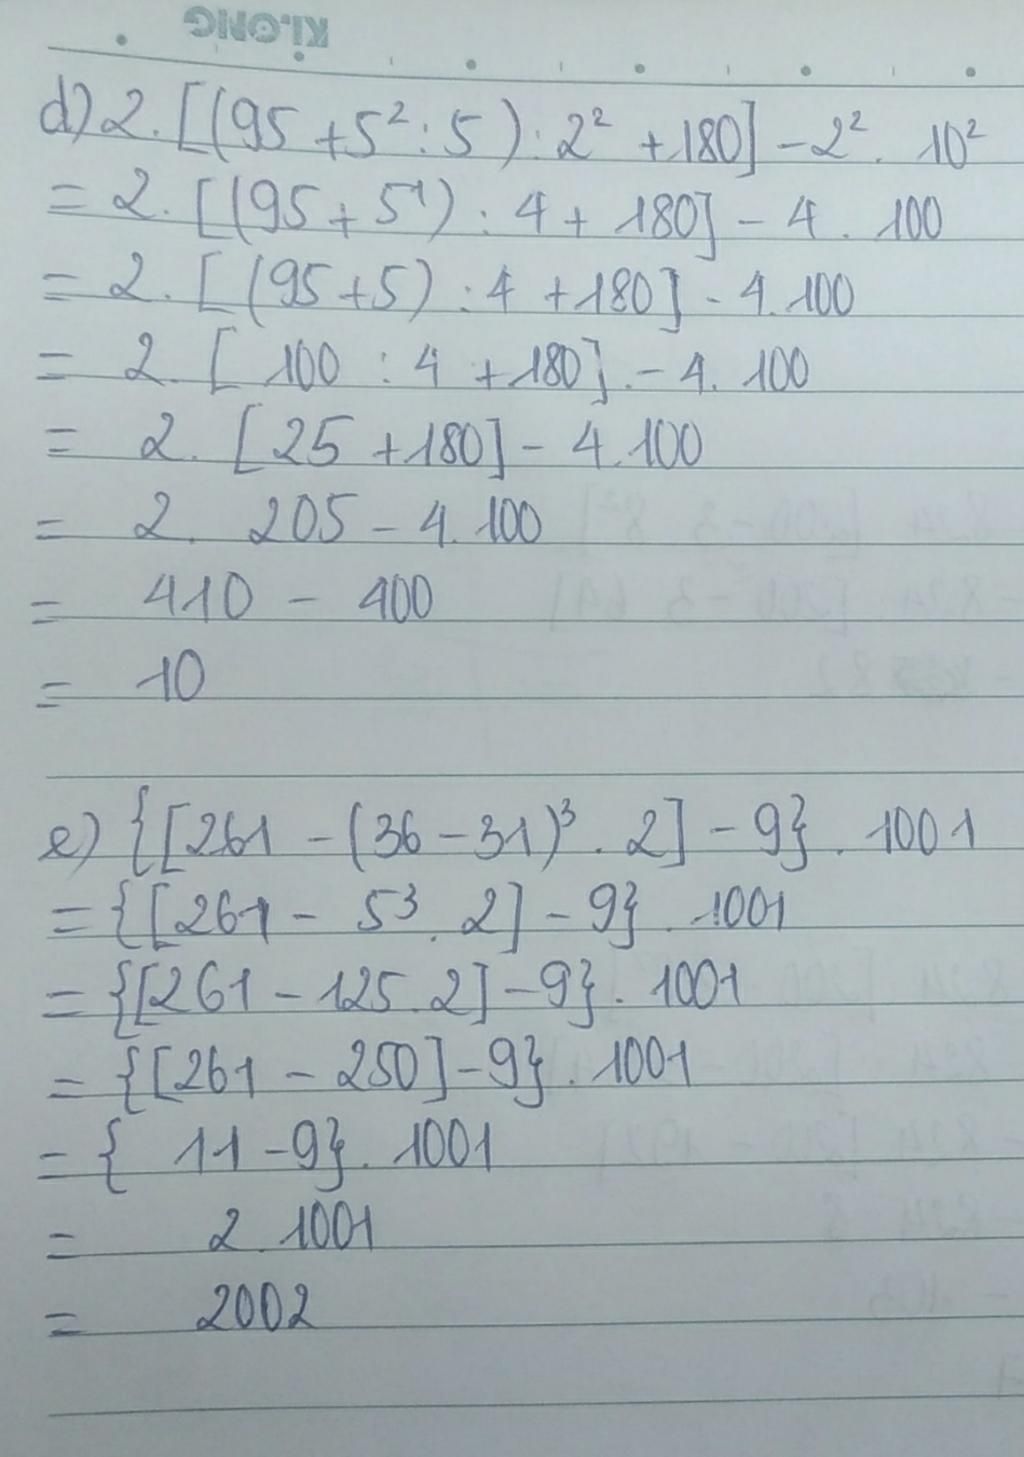 KLONG
d) 2. [(95 + 5² : 5) : 2² + 180] - 2² . 10²
= 2. [(95 + 5¹) : 4 + 180] - 4 . 100
= 2. [(95 + 5) : 4 + 180] - 4.100
= 2. [ 100 : 4 + 180] - 4. 100
= 2. [25 + 180] - 4.100
= 2. 205 - 4.100
= 410 - 400
= 10
e) {[261 - (36 - 31)³ . 2] - 9} . 1001
= {[261 - 5³ . 2] - 9} . 1001
= {[261 - 125.2] - 9} . 1001
= {[261 - 250] - 9} . 1001
= { 11 - 9} . 1001
= 2 . 1001
= 2002